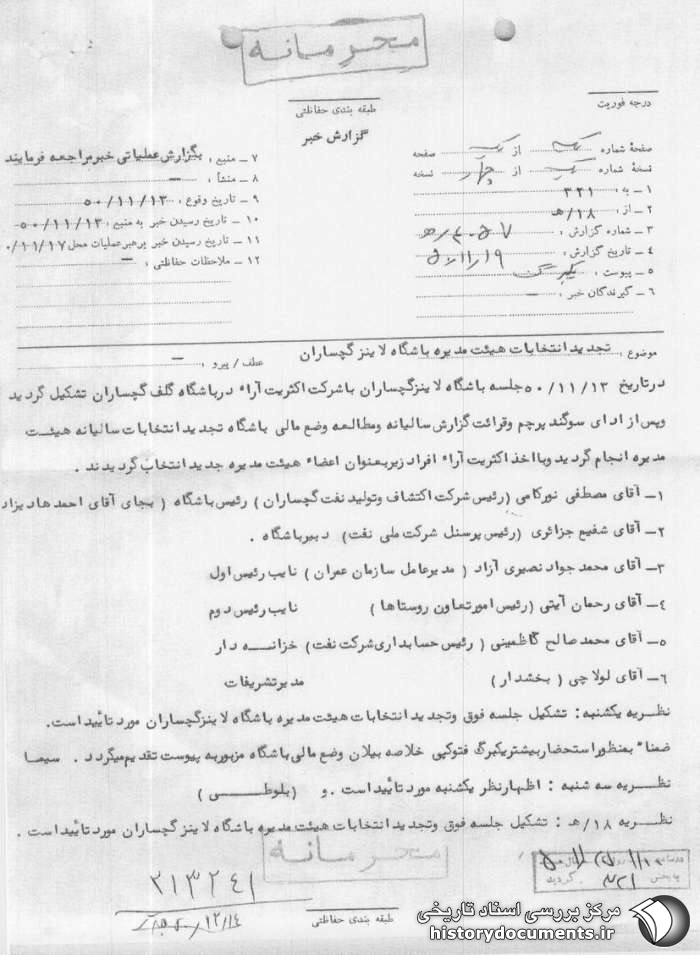 محرمانه
درجه فوریت
طبقه بندی حفاظتی
گزارش خبر
صفحهٔ شماره یک از یک صفحه
نسخهٔ شماره یک از چهار نسخه
۱ـ به : ۳۲۱
۲ـ از : ۱۸/هـ
۳ـ شماره گزارش :
۴ـ تاریخ گزارش : ۵۰/۱۱/۱۹
۵ـ پیوست : یکبرگ
۶ـ گیرندگان خبر : —
۷ـ منبع : بگزارش عملیاتی خبر مراجعه فرمایند
۸ـ منشأ : —
۹ـ تاریخ وقوع : ۵۰/۱۱/۱۳
۱۰ـ تاریخ رسیدن خبر به منبع : ۵۰/۱۱/۱۳
۱۱ـ تاریخ رسیدن خبر برهبر عملیات محل ۰/۱۱/۱۷
۱۲ـ ملاحظات حفاظتی : —
موضوع : تجدید انتخابات هیئت مدیره باشگاه لاینز گچساران
عطف / پیرو : —
در تاریخ ۵۰/۱۱/۱۳ جلسه باشگاه لاینز گچساران با شرکت اکثریت آراء در باشگاه گلف گچساران تشکیل گردید
و پس از ادای سوگند پرچم و قرائت گزارش سالیانه و مطالعه وضع مالی باشگاه تجدید انتخابات سالیانه هیئت
مدیره انجام گردید و با اخذ اکثریت آراء افراد زیر بعنوان اعضاء هیئت مدیره جدید انتخاب گردیدند .
۱ـ آقای مصطفی نورکامی (رئیس شرکت اکتشاف و تولید نفت گچساران) رئیس باشگاه ( بجای آقای احمد هادیزاد
۲ـ آقای شفیع جزائری (رئیس پرسنل شرکت ملی نفت) دبیر باشگاه .
۳ـ آقای محمد جواد نصیری آزاد ( مدیرعامل سازمان عمران ) نایب رئیس اول
۴ـ آقای رحمان آیتی (رئیس امور تعاون روستاها ) نایب رئیس دوم
۵ـ آقای محمد صالح کاظمینی ( رئیس حسابداری شرکت نفت) خزانه دار
۶ـ آقای لولاچی ( بخشدار ) مدیر تشریفات
نظریه یکشنبه : تشکیل جلسه فوق و تجدید انتخابات هیئت مدیره باشگاه لاینز گچساران مورد تأیید است.
ضمناً بمنظور استحضار بیشتر یکبرگ فتوکپی خلاصه بیلان وضع مالی باشگاه مزبور به پیوست تقدیم میگردد . سیما
نظریه سه شنبه : اظهار نظر یکشنبه مورد تأیید است . و (بلوطی )
نظریه ۱۸/هـ : تشکیل جلسه فوق و تجدید انتخابات هیئت مدیره باشگاه لاینز گچساران مورد تأیید است .
محرمانه
به بخش ۳۲۱ گردید
۳۱۳۲۴۱
۵۰/۱۲/۱۴
طبقه بندی حفاظتی
مرکز بررسی اسناد تاریخی
historydocuments.ir